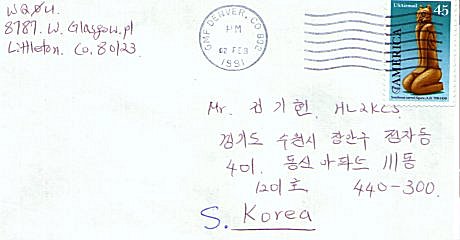 WQ0U.
8787. W. Glasgow.pl
Littleton. Co. 80123
GMF DENVER, CO 802
PM
02 FEB
1991
USAirmail 45
AMERICA
Mr. 김기현. HL2KCS
경기도 수원시 장안구 전자동
401. 동신아파트 111동
1201호 440-300.
S. Korea